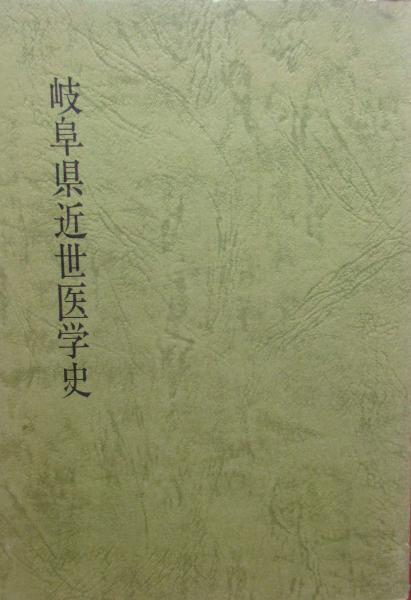 岐阜県近世医学史